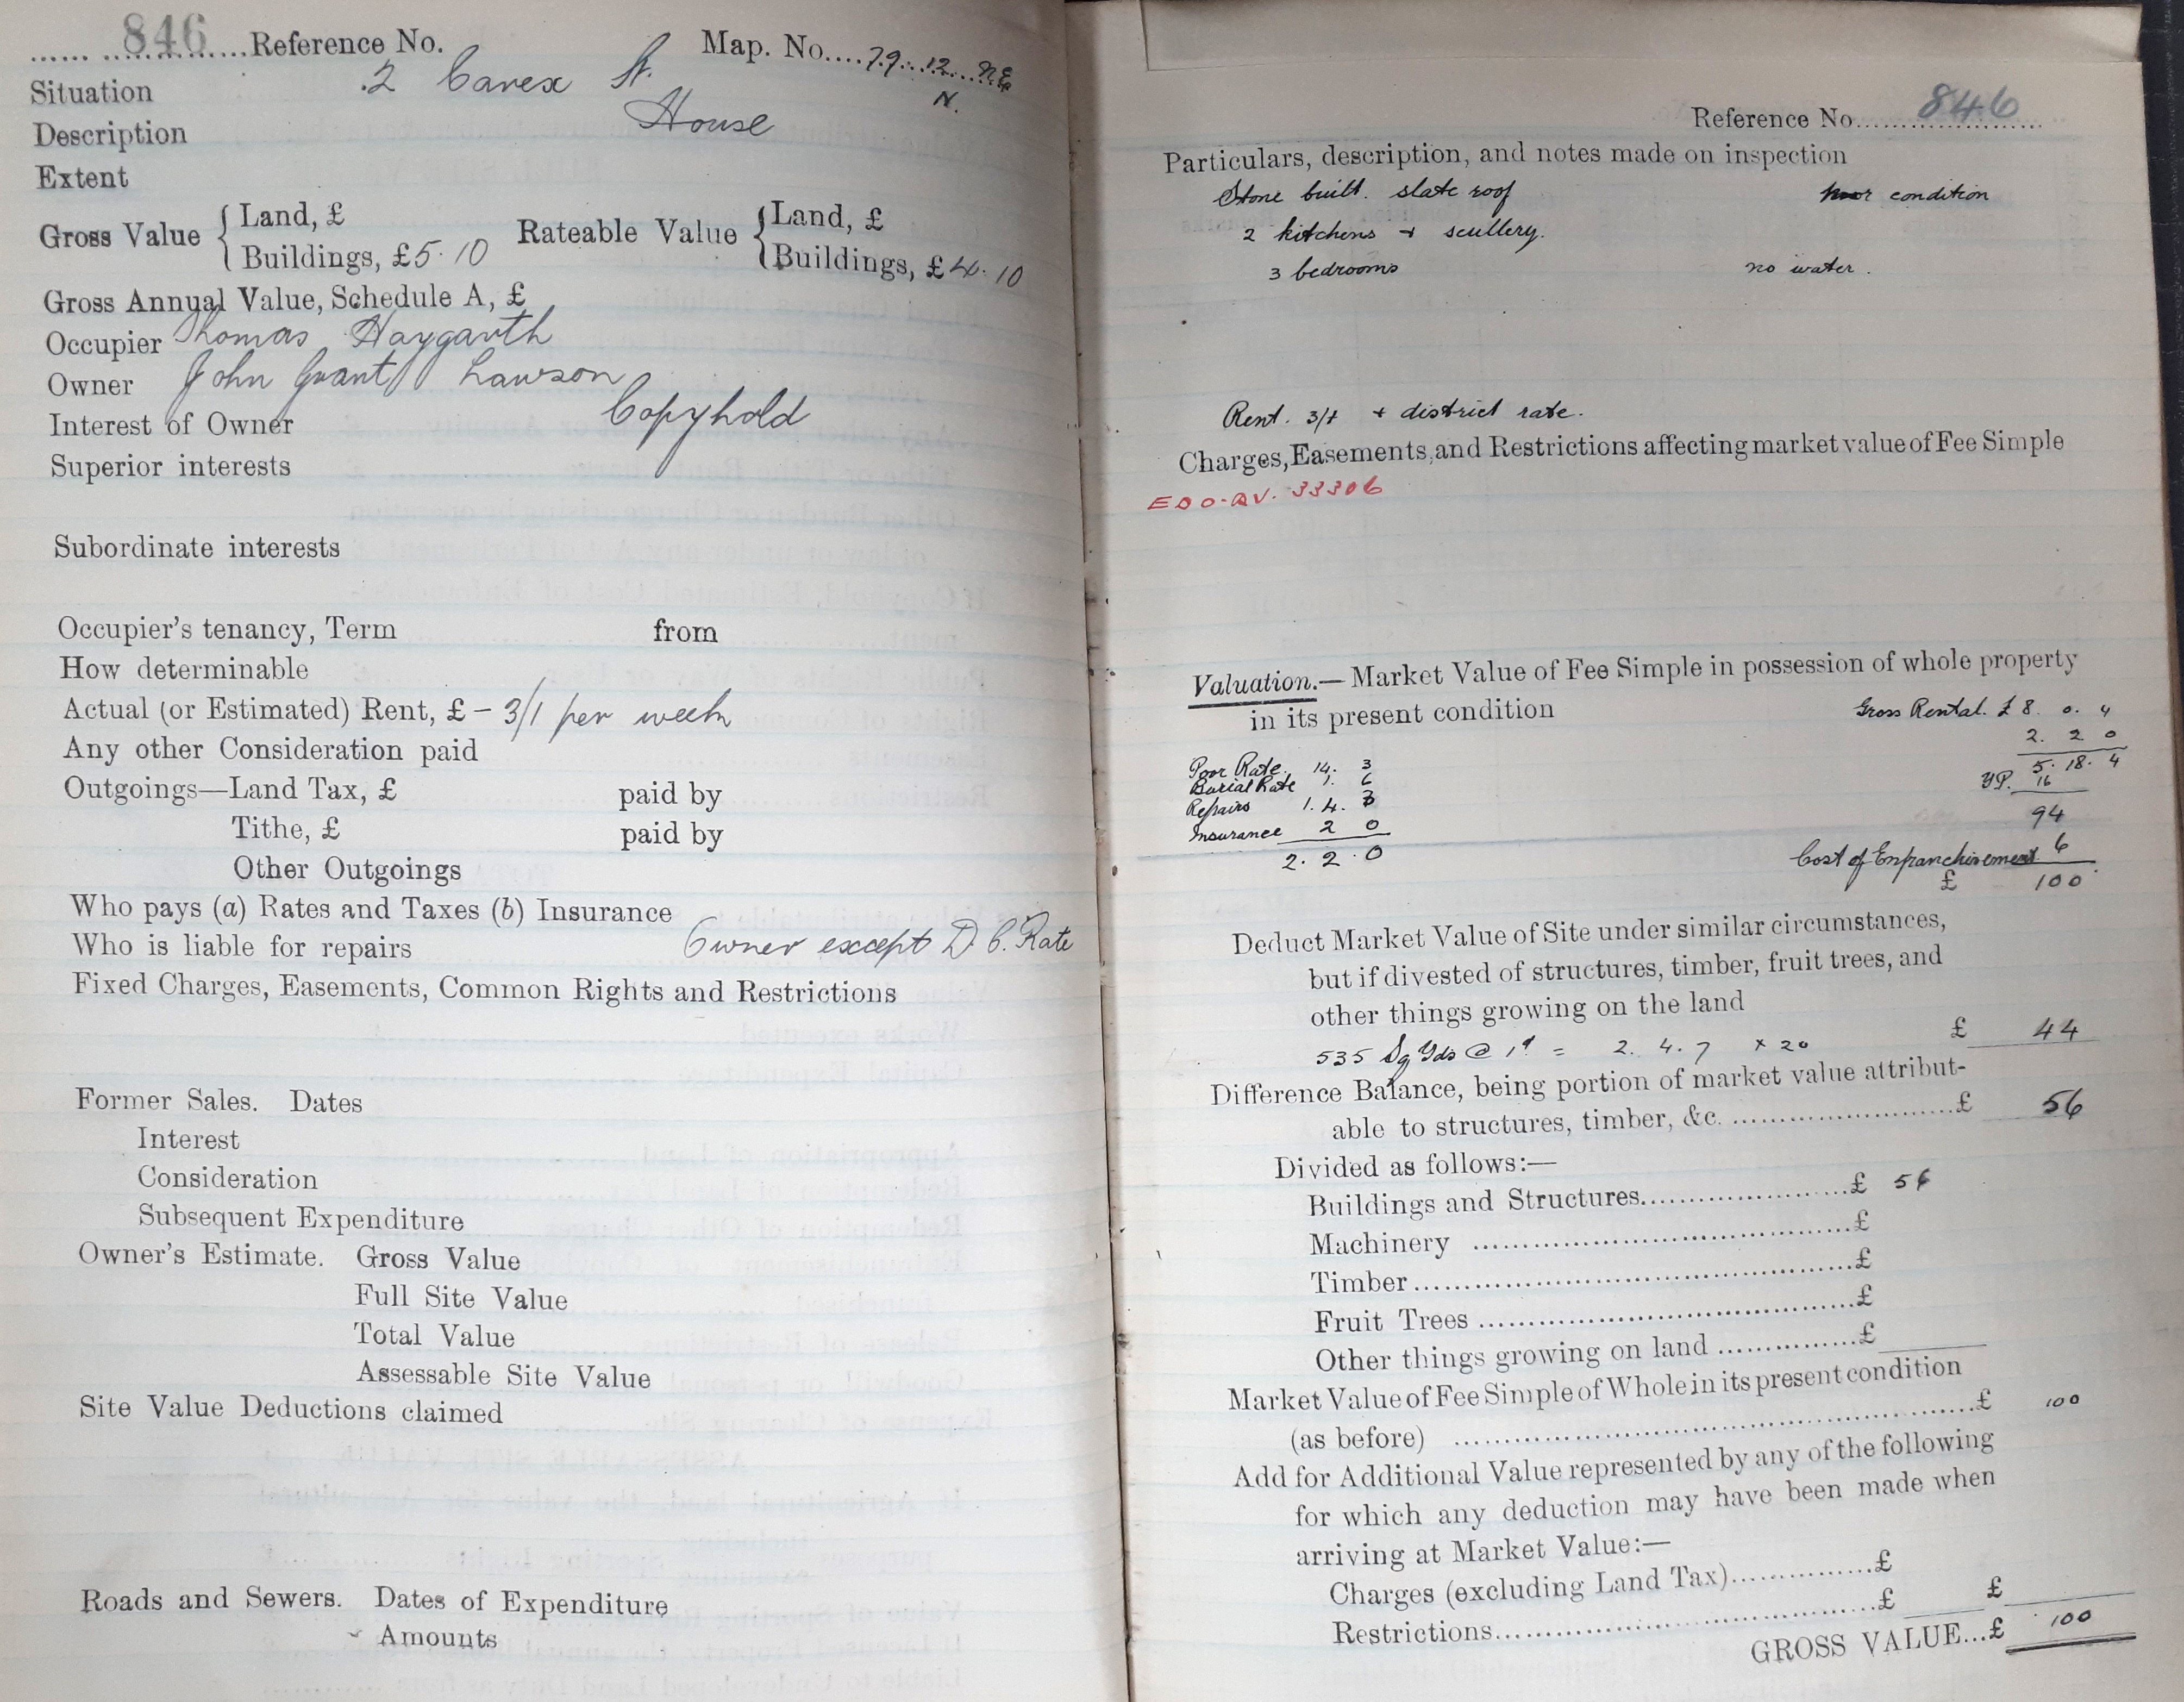 846 Reference No. Map. No. 79. 12. NE
N.
Situation 2 Carex St.
Description House
Extent
Gross Value { Land, £ Rateable Value { Land, £
Buildings, £5.10 Buildings, £4.10
Gross Annual Value, Schedule A, £
Occupier Thomas Haygarth
Owner John Grant Lawson
Interest of Owner Copyhold
Superior interests
Subordinate interests
Occupier's tenancy, Term from
How determinable
Actual (or Estimated) Rent, £ - 3/1 per week
Any other Consideration paid
Outgoings—Land Tax, £ paid by
Tithe, £ paid by
Other Outgoings
Who pays (a) Rates and Taxes (b) Insurance
Who is liable for repairs Owner except D C. Rate
Fixed Charges, Easements, Common Rights and Restrictions
Former Sales. Dates
Interest
Consideration
Subsequent Expenditure
Owner's Estimate. Gross Value
Full Site Value
Total Value
Assessable Site Value
Site Value Deductions claimed
Roads and Sewers. Dates of Expenditure
Amounts
Reference No. 846
Particulars, description, and notes made on inspection
Stone built. slate roof condition
2 kitchens + scullery.
3 bedrooms no water.
Rent. 3/1 + district rate.
Charges, Easements, and Restrictions affecting market value of Fee Simple
33306
Valuation.—Market Value of Fee Simple in possession of whole property
in its present condition Gross Rental. £8. 0. 4
2. 2 0
Poor Rate. 14. 3 5. 18. 4
Burial Rate 1. 6 YP. 16
Repairs 1. 4. 3 94
Insurance 2 0
2. 2. 0 Cost of Enfranchisement 6
£ 100
Deduct Market Value of Site under similar circumstances,
but if divested of structures, timber, fruit trees, and
other things growing on the land
535 Sq Yds @ 1d = 2. 4. 7 x 20 £ 44
Difference Balance, being portion of market value attribut-
able to structures, timber, &c. £ 56
Divided as follows:—
Buildings and Structures £ 56
Machinery £
Timber £
Fruit Trees £
Other things growing on land £
Market Value of Fee Simple of Whole in its present condition
(as before) £ 100
Add for Additional Value represented by any of the following
for which any deduction may have been made when
arriving at Market Value:—
Charges (excluding Land Tax) £
Restrictions £ £
GROSS VALUE...£ 100